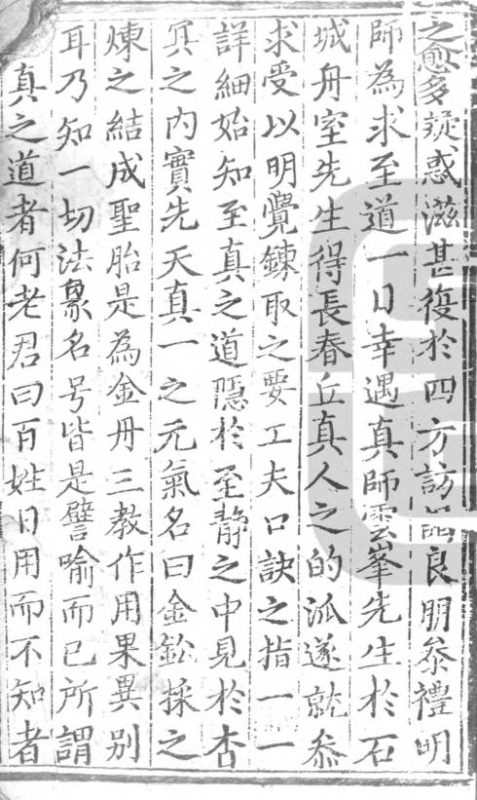 之愈多疑惑滋甚復於四方訪良朋叅禮明
師為求至道一日幸遇真師雲峯先生於石
城丹室先生得長春丘真人之的派遂就叅
求受以明覺鍊取之要工夫口訣之指一一
詳細始知至真之道隱於至静之中見於杳
冥之内實先天真一之元氣名曰金鈆採之
煉之結成聖胎是為金丹三教作用果異别
耳乃知一切法象名号皆是譬喻而已所謂
真之道者何老君曰百姓日用而不知者